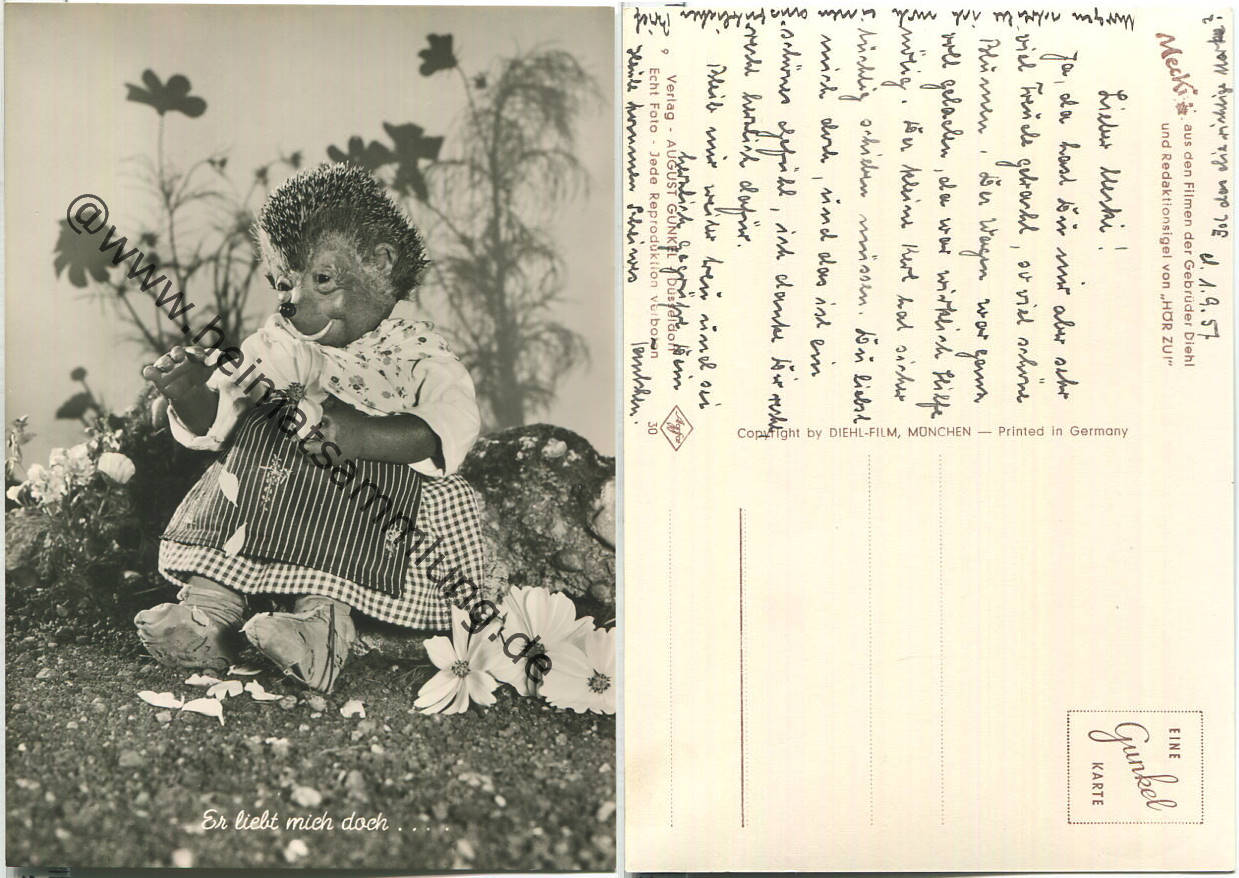 @www.heimatsammlung.de
Er liebt mich doch . . . .
Mecki
aus den Filmen der Gebrüder Diehl
und Redaktionsigel von „HÖR ZU!"
d. 1. 9. 57
Lieber Mecki!
Ja, da hast Du mir aber sehr
viel Freude gebracht, so viel schöne
Blumen. Der Wagen war ganz
voll geladen, da war wirklich Hilfe
nötig. Der kleine hat sicher
tüchtig schieben müssen. Du liebst
mich doch, und das ist ein
schönes Gefühl, ich danke Dir recht
recht herzlich dafür.
Bleib mir weiter treu und sei
herzlich gegrüßt Dein
9 Verlag - AUGUST GUNKEL Düsseldorf
Echt Foto - Jede Reproduktion verboten
30
Agfa
Copyright by DIEHL-FILM, MÜNCHEN — Printed in Germany
EINE
Gunkel
KARTE